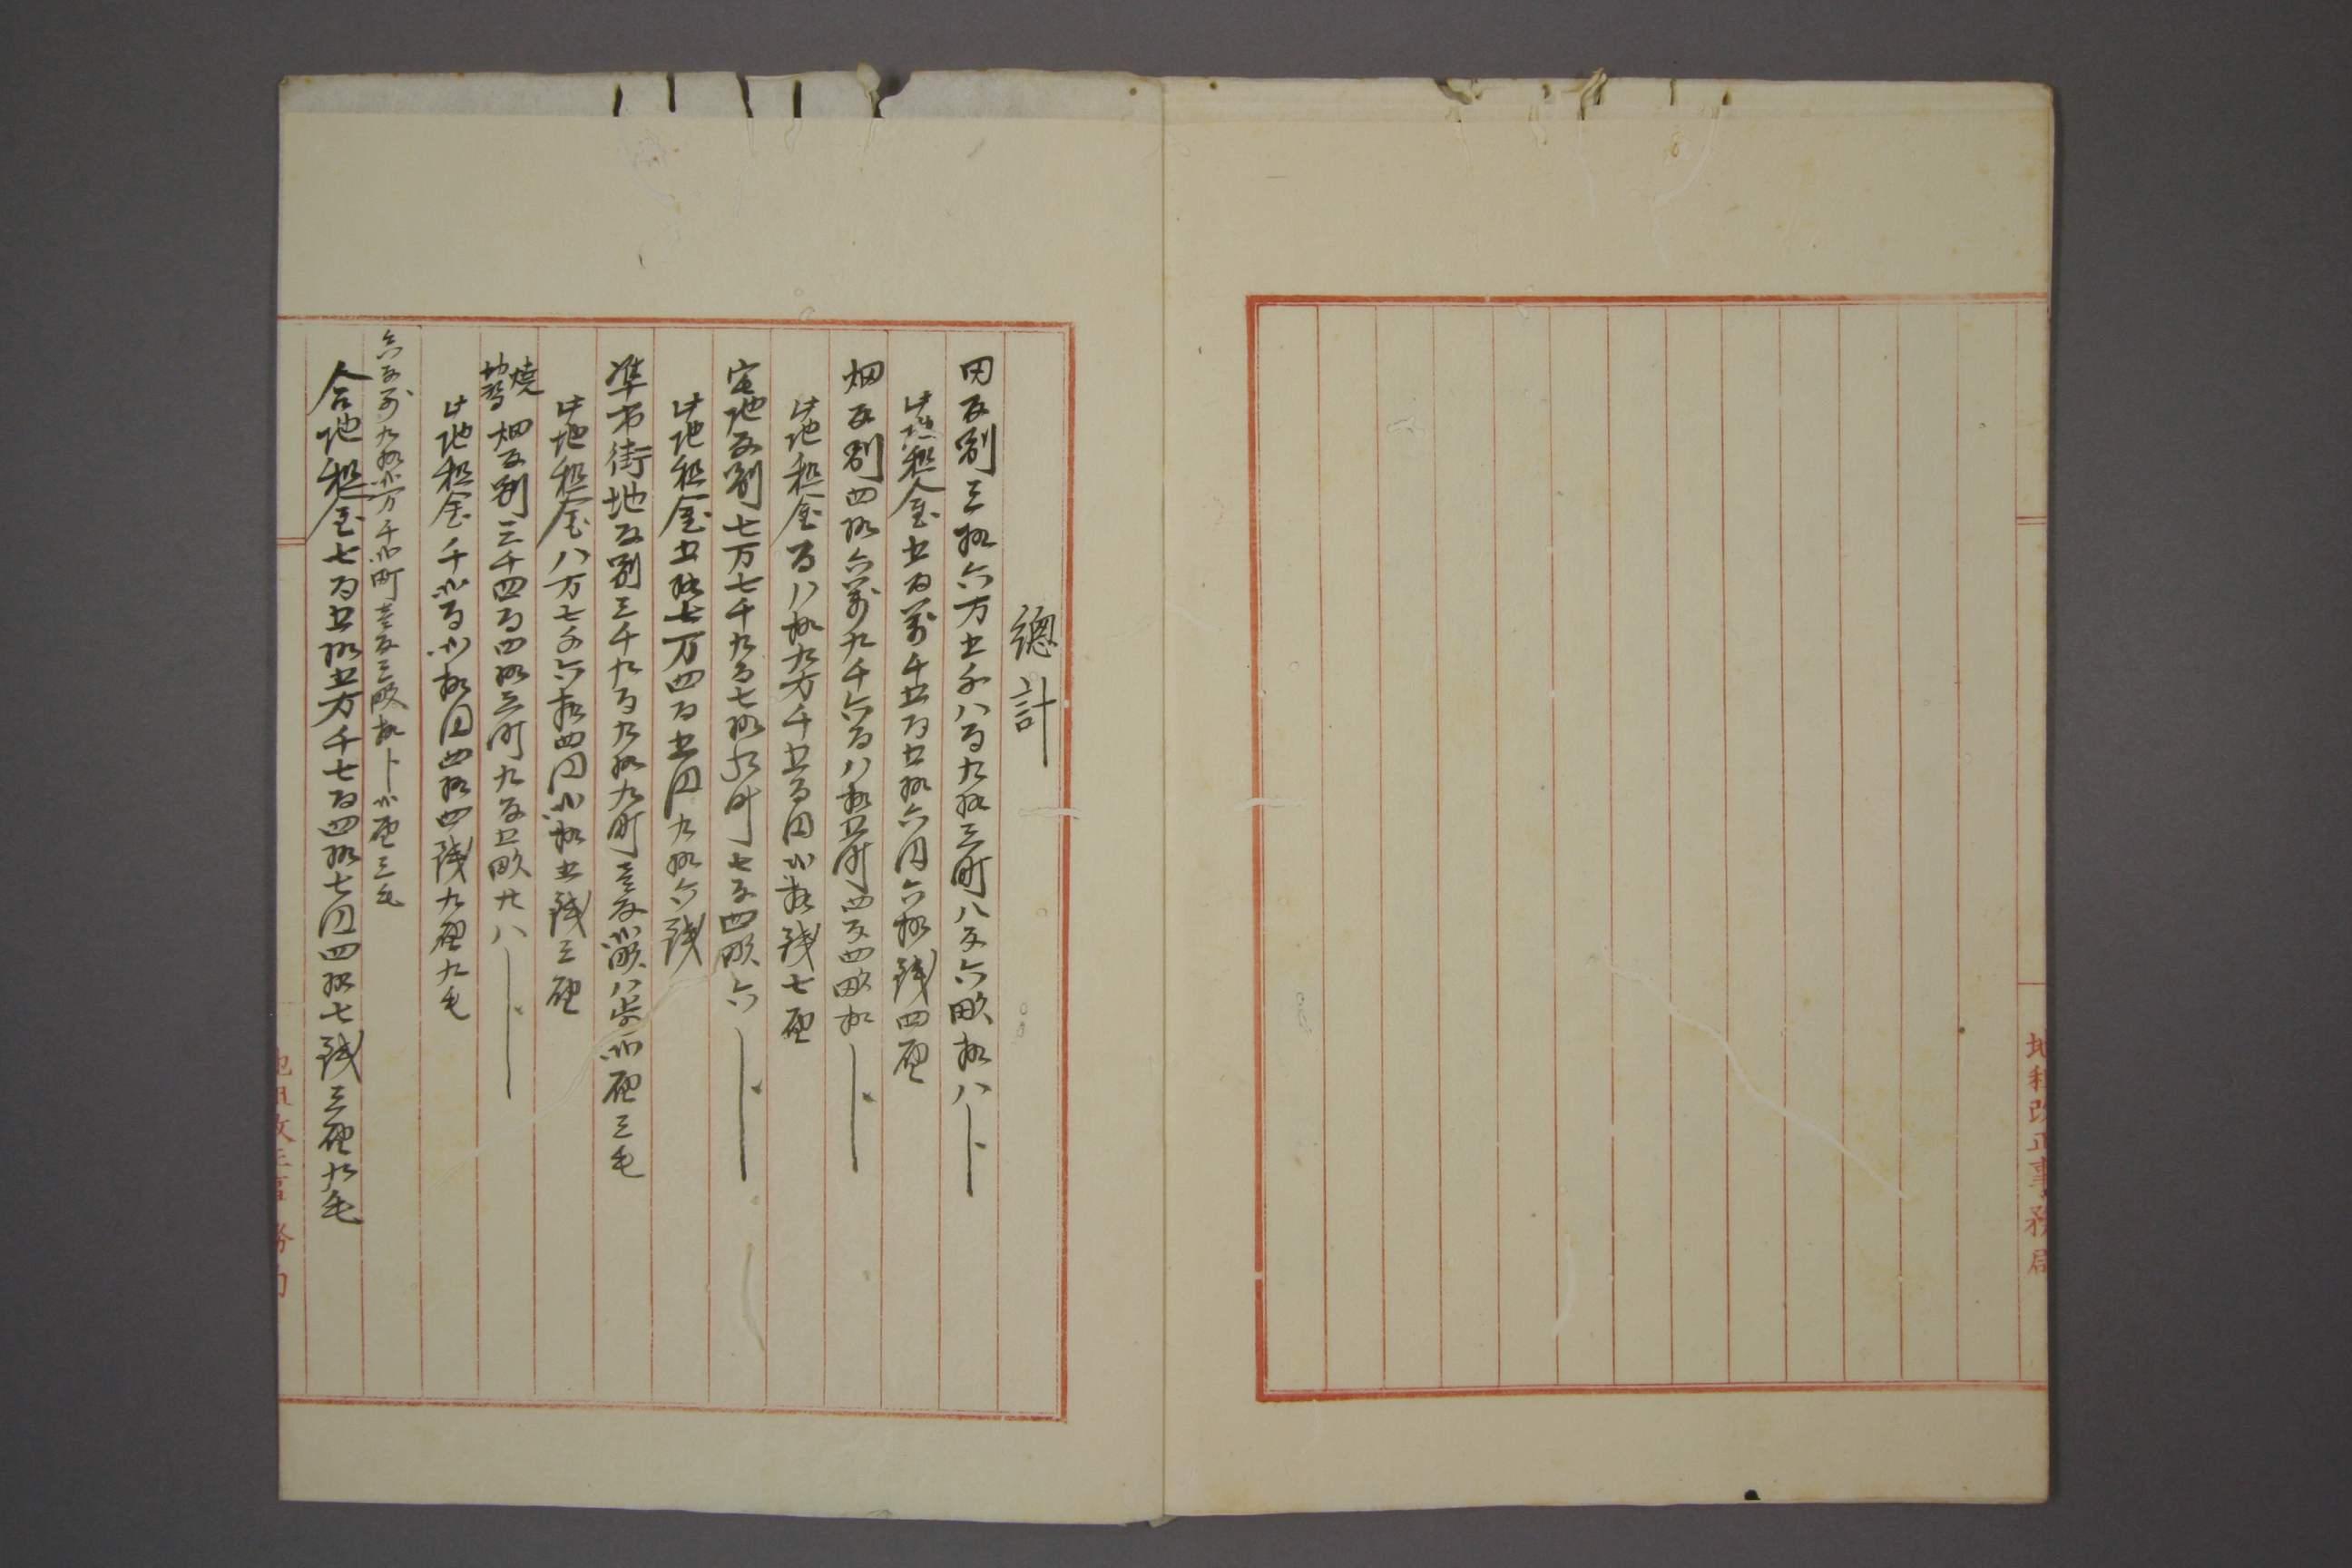 地租改正事務局
總計
田反別三拾六万五千八百九拾三町八反六畝拾八卜
此地租金五百萬千五百五拾六円六拾銭四厘
畑反別四拾六萬九千六百八拾五町四反四畝拾卜
此地租金百八拾九万千五百円弐拾銭七厘
宅地反別七万七千九百七拾九町七反四畝六卜
此地租金五拾七万四百五円九拾六銭
準市街地反別三千九百九拾九町壱反弐畝八歩弐厘三毛
此地租金八万七千六拾四円弐拾五銭三厘
焼切替畑反別三千四百四拾三町九反五畝廿八卜
此地租金千弐百弐拾円四拾四銭九厘九毛
合反別九拾弐万千弐町壱反三畝拾卜弐厘三毛
合地租金七百五拾五万千七百四拾七円四拾七銭三厘九毛
地租改正事務局